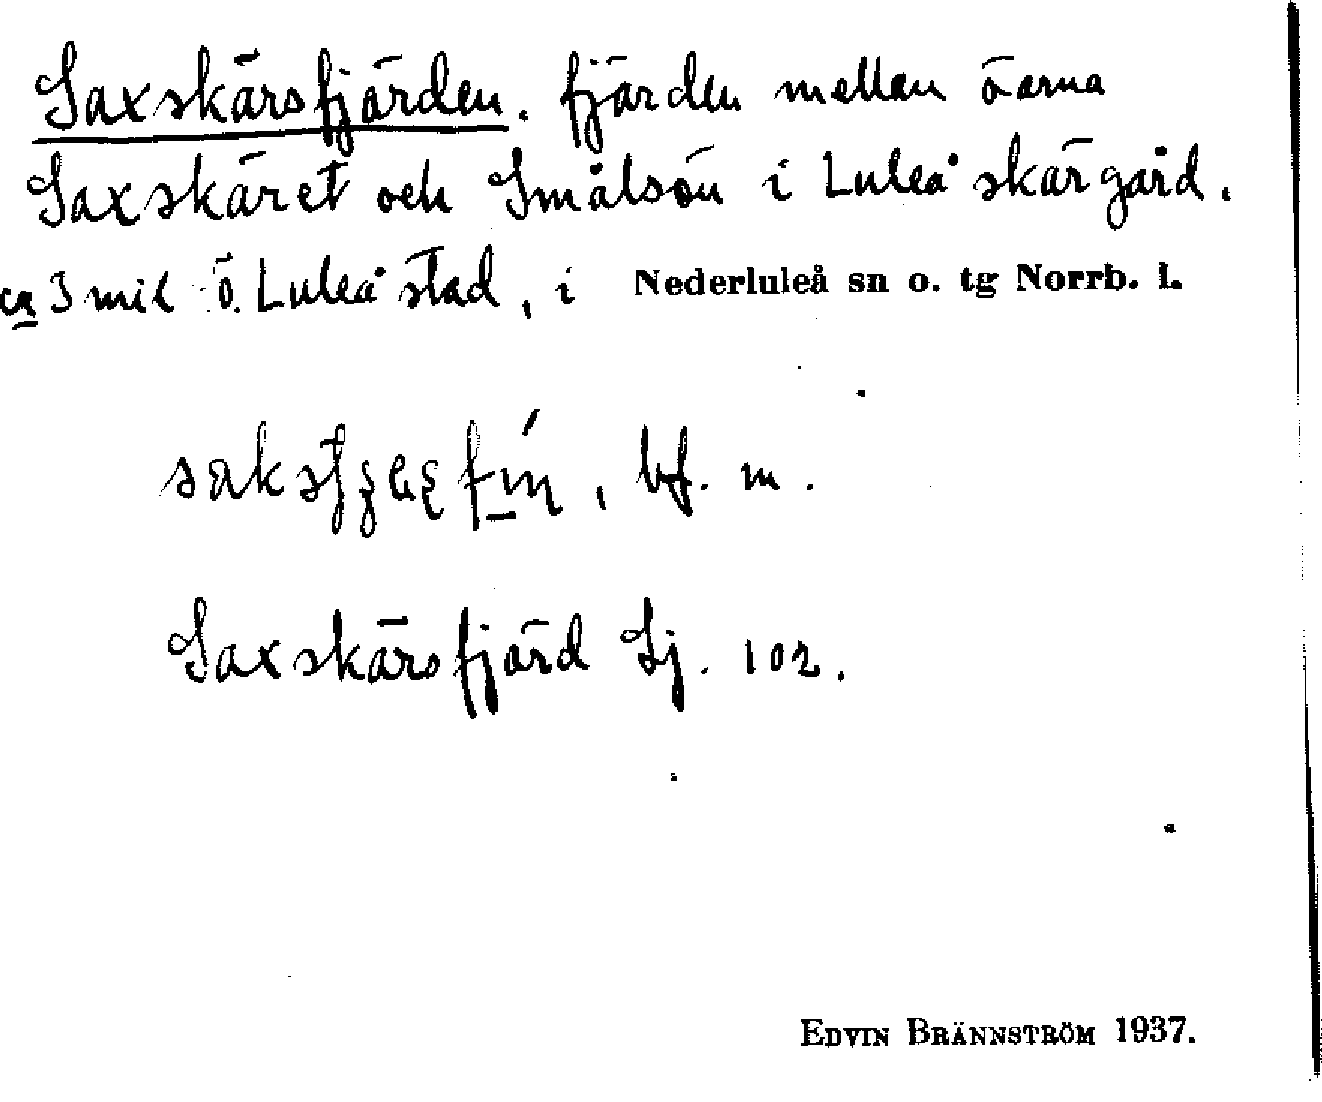 Saxskärsfjärden. fjärden mellan öarna
Saxskäret och Smålsön i Luleå skärgård.
ca 3 mil ö. Luleå stad, i Nederluleå sn o. tg Norrb. l.
bf. m.
Saxskärsfjärd Sj. 102.
EDVIN BRÄNNSTRÖM 1937.